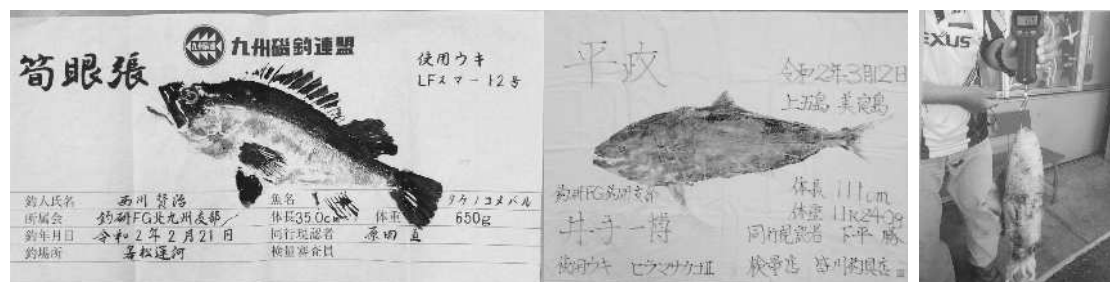 九州磯釣連盟
筍眼張
使用ウキ
LFスマート2号
釣人氏名 西川 賢治 魚名 タケノコメバル
所属会 釣研FG北九州支部 体長35.0cm 体重 650g
釣年月日 令和2年2月21日 同行現認者 原田 直
釣場所 若松運河 検量審査員
平政
令和2年3月12日
上五島 美良島
釣研FG釣研支部
体長 111cm
体重 11K240g
井手一博
同行現認者 下平 勝
使用ウキ ヒラマサウキⅡ 検量店
EXUS